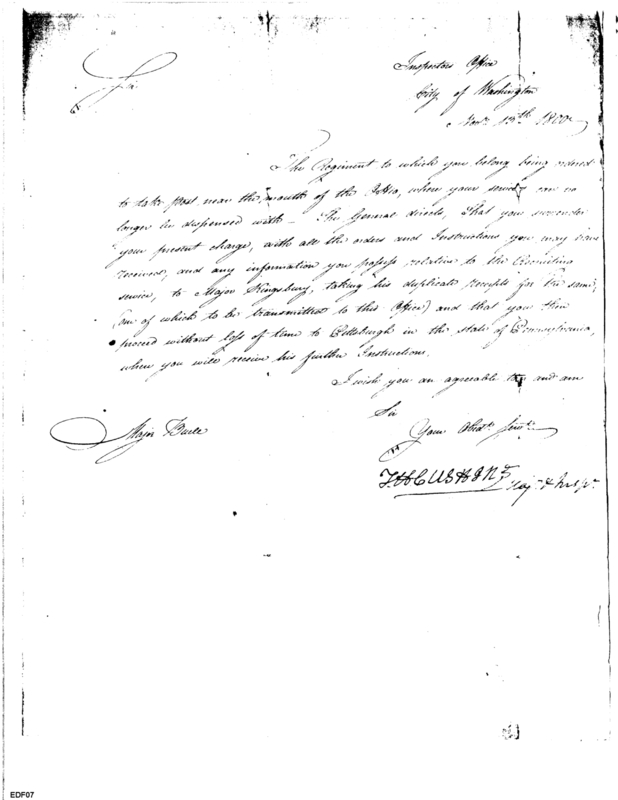 Inspectors Office
City of Washington
Novr. 13th 1800
Sir
The Regiment to which you belong being ordered
to take post near the mouth of the Ohio, where your services can no
longer be dispensed with – The General directs, that you surrender
your present charge, with all the orders and Instructions you may have
received, and any information you possess relative to the Recruiting
service, to Major Kingsbury, taking his duplicate receipts for the same,
(one of which to be transmitted to this Office) and that you then
proceed without loss of time to Pittsburgh in the state of Pennsylvania,
where you will receive his further Instructions.
I wish you an agreable and am
Sir
Your Obedt. Servt.
Major Buell
T. H. CUSHING
Majr. & Inspr.
EDF07